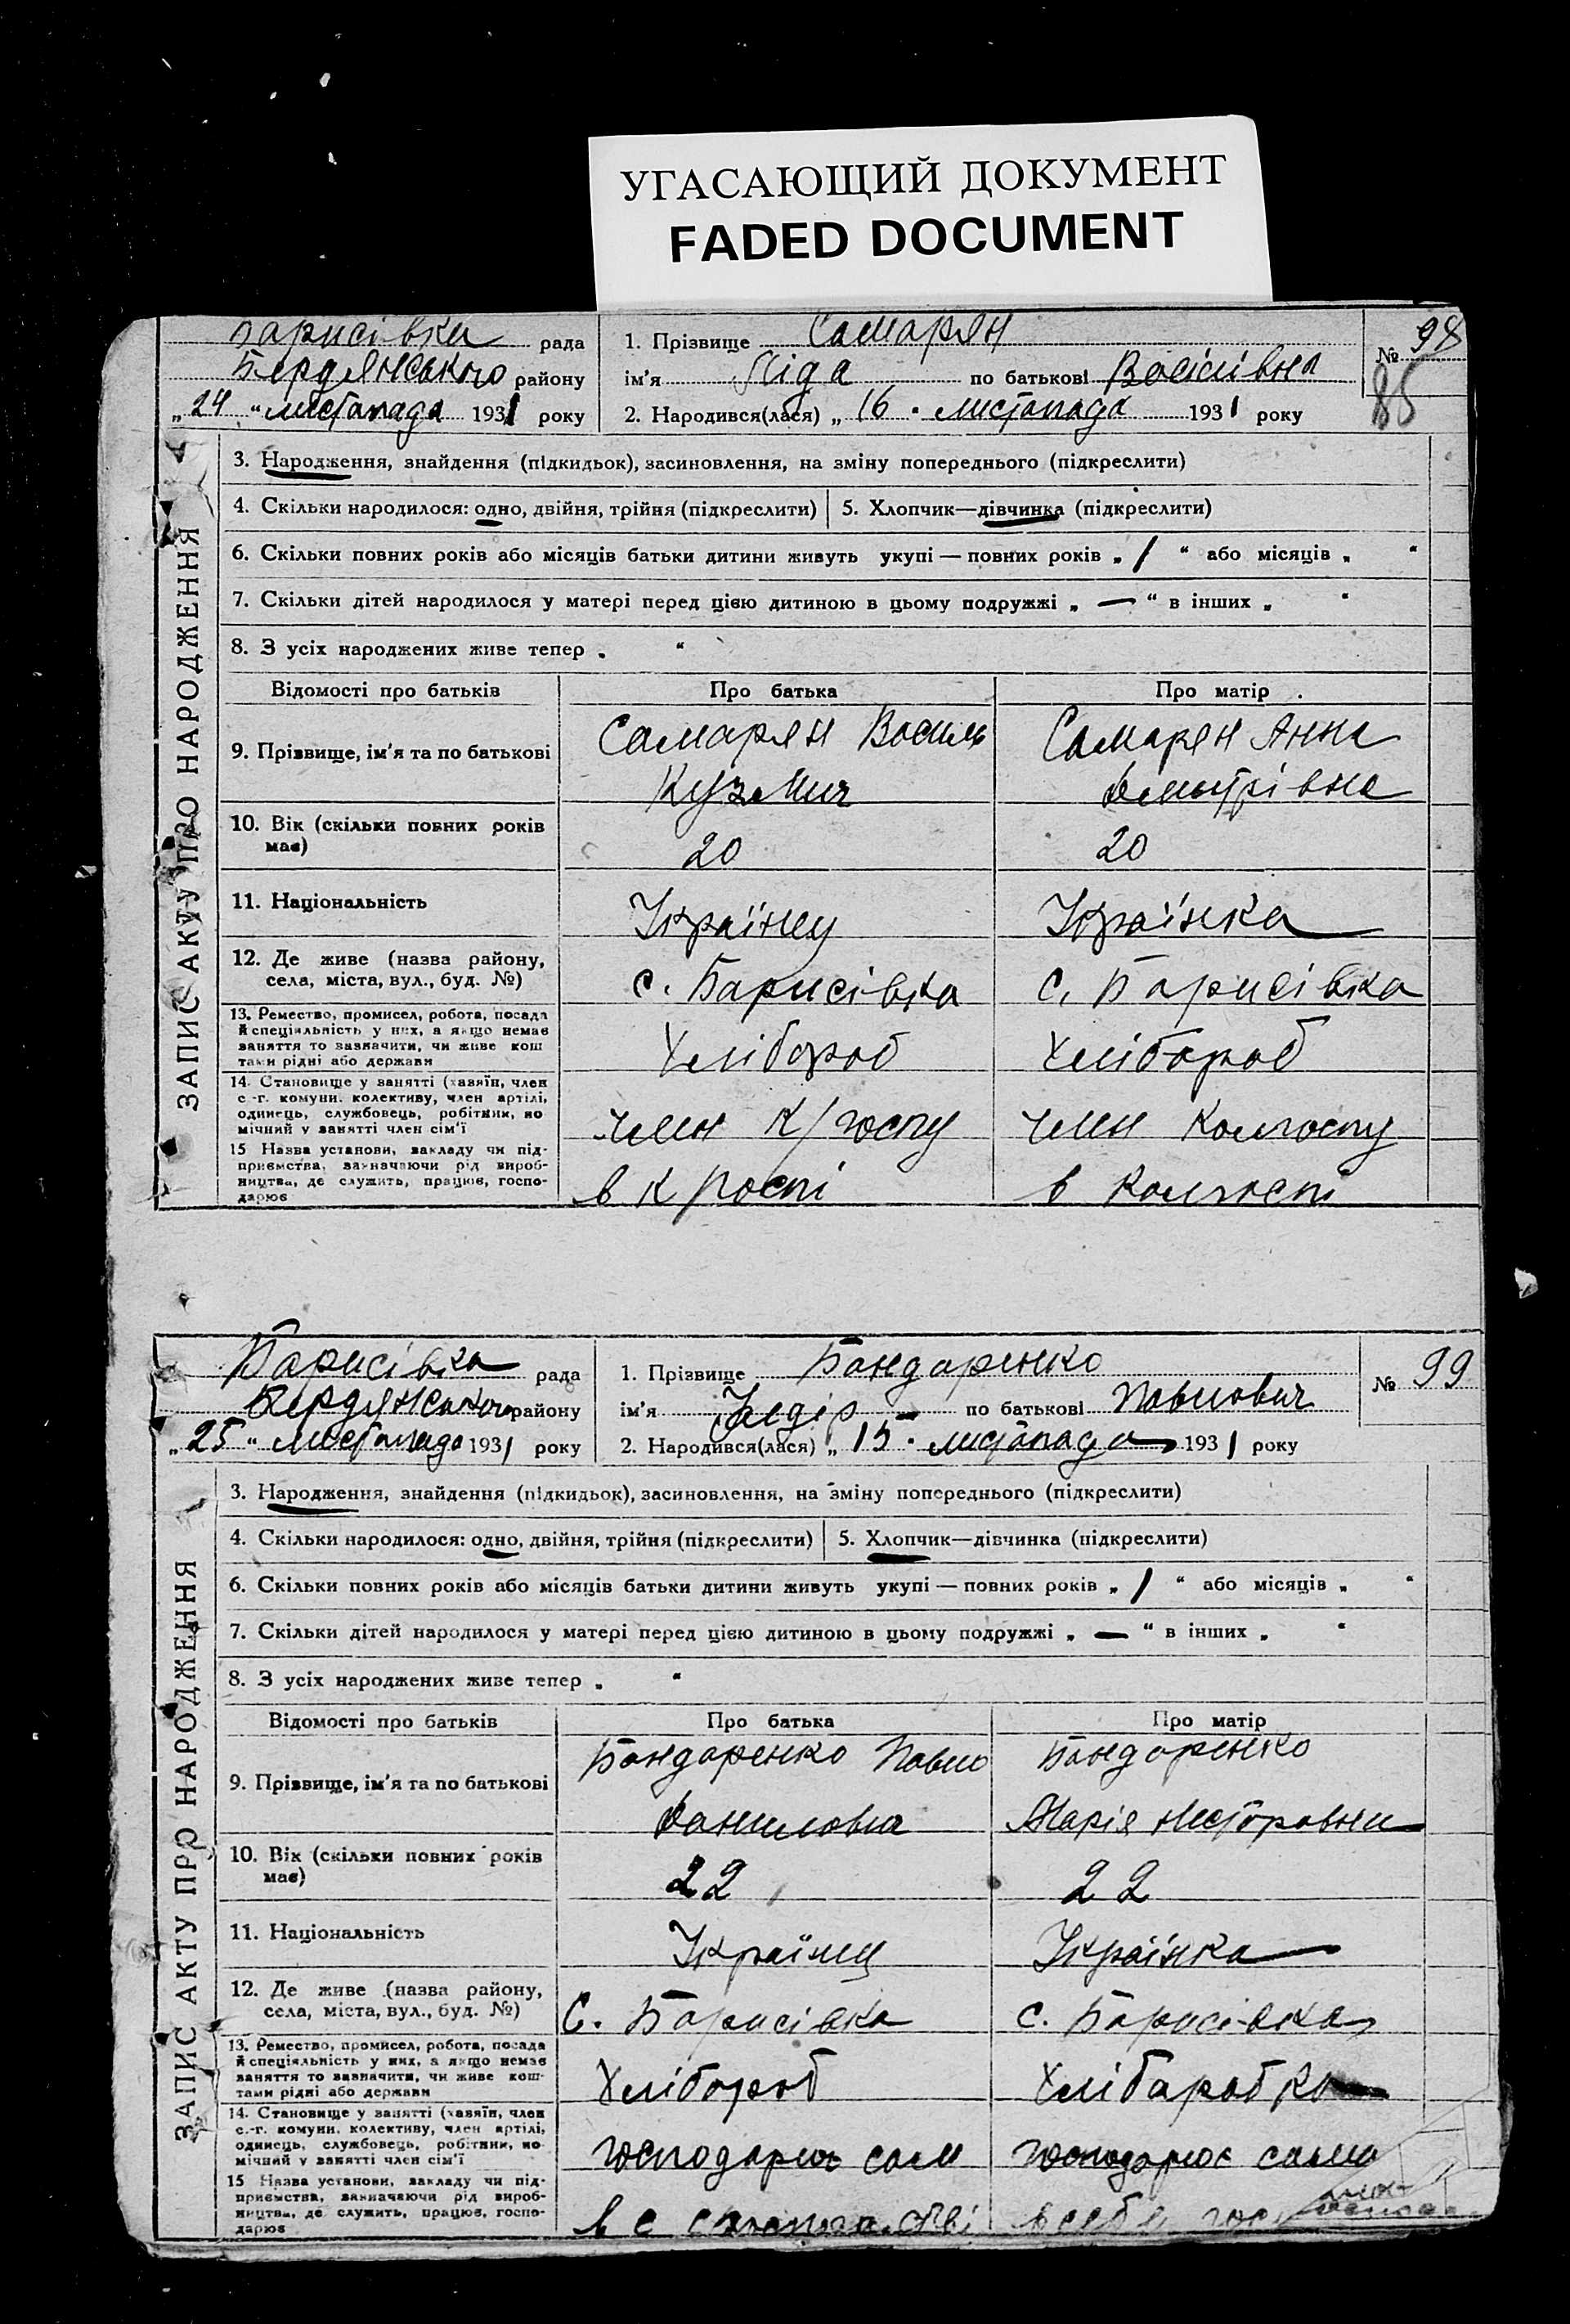 УГАСАЮЩИЙ ДОКУМЕНТ
FADED DOCUMENT
Барисівка рада
Бердянського району
„24 “ листопада 1931 року
1. Прізвище Самарян
ім’я Ліда по батькові Васілівна
2. Народився(лася) „ 16 “ листопада 1931 року
№ 98
85
ЗАПИС АКТУ ПРО НАРОДЖЕННЯ
3. Народження, знайдення (підкидьок), засиновлення, на зміну попереднього (підкреслити)
4. Скільки народилося: одно, двійня, трійня (підкреслити) 5. Хлопчик—дівчинка (підкреслити)
6. Скільки повних років або місяців батьки дитини живуть укупі — повних років „ 1 “ або місяців „ “
7. Скільки дітей народилося у матері перед цією дитиною в цьому подружжі „ — “ в інших „ “
8. З усіх народжених живе тепер „ “
Відомості про батьків Про батька Про матір
9. Прізвище, ім’я та по батькові Самарян Василь Кузмич Самарян Анна Дмитрівна
10. Вік (скільки повних років має) 20 20
11. Національність Українец Українка
12. Де живе (назва району, села, міста, вул., буд. №) с. Барисівка с. Барисівка
13. Ремество, промисел, робота, посада й спеціяльність у них, а якщо немає заняття то зазначити, чи живе коштами рідні або держави Хлібороб Хлібороб
14. Становище у занятті (хазяїн, член с.-г. комуни, колективу, член артілі, одинець, службовець, робітник, помічний у занятті член сім’ї член К/госпу член Колгоспу
15 Назва установи, закладу чи підприємства, зазначаючи рід виробництва, де служить, працює, господарює в К/госпі в Колгоспі
Барисівка рада
Бердянського району
„25 “ листопада 1931 року
1. Прізвище Бондаренко
ім’я по батькові Павлович
2. Народився(лася) „ 15 “ листопада 1931 року
№ 99
ЗАПИС АКТУ ПРО НАРОДЖЕННЯ
3. Народження, знайдення (підкидьок), засиновлення, на зміну попереднього (підкреслити)
4. Скільки народилося: одно, двійня, трійня (підкреслити) 5. Хлопчик—дівчинка (підкреслити)
6. Скільки повних років або місяців батьки дитини живуть укупі — повних років „ 1 “ або місяців „ “
7. Скільки дітей народилося у матері перед цією дитиною в цьому подружжі „ — “ в інших „ “
8. З усіх народжених живе тепер „ “
Відомості про батьків Про батька Про матір
9. Прізвище, ім’я та по батькові Бондаренко Павло Данилович Бондаренко Марія Несторовна
10. Вік (скільки повних років має) 22 22
11. Національність Українец Українка
12. Де живе (назва району, села, міста, вул., буд. №) С. Барисівка с. Барисівка
13. Ремество, промисел, робота, посада й спеціяльність у них, а якщо немає заняття то зазначити, чи живе коштами рідні або держави Хлібороб Хлібаробка
14. Становище у занятті (хазяїн, член с.-г. комуни, колективу, член артілі, одинець, службовець, робітник, помічний у занятті член сім’ї господарює сам господарює сама
15 Назва установи, закладу чи підприємства, зазначаючи рід виробництва, де служить, працює, господарює в с в себе